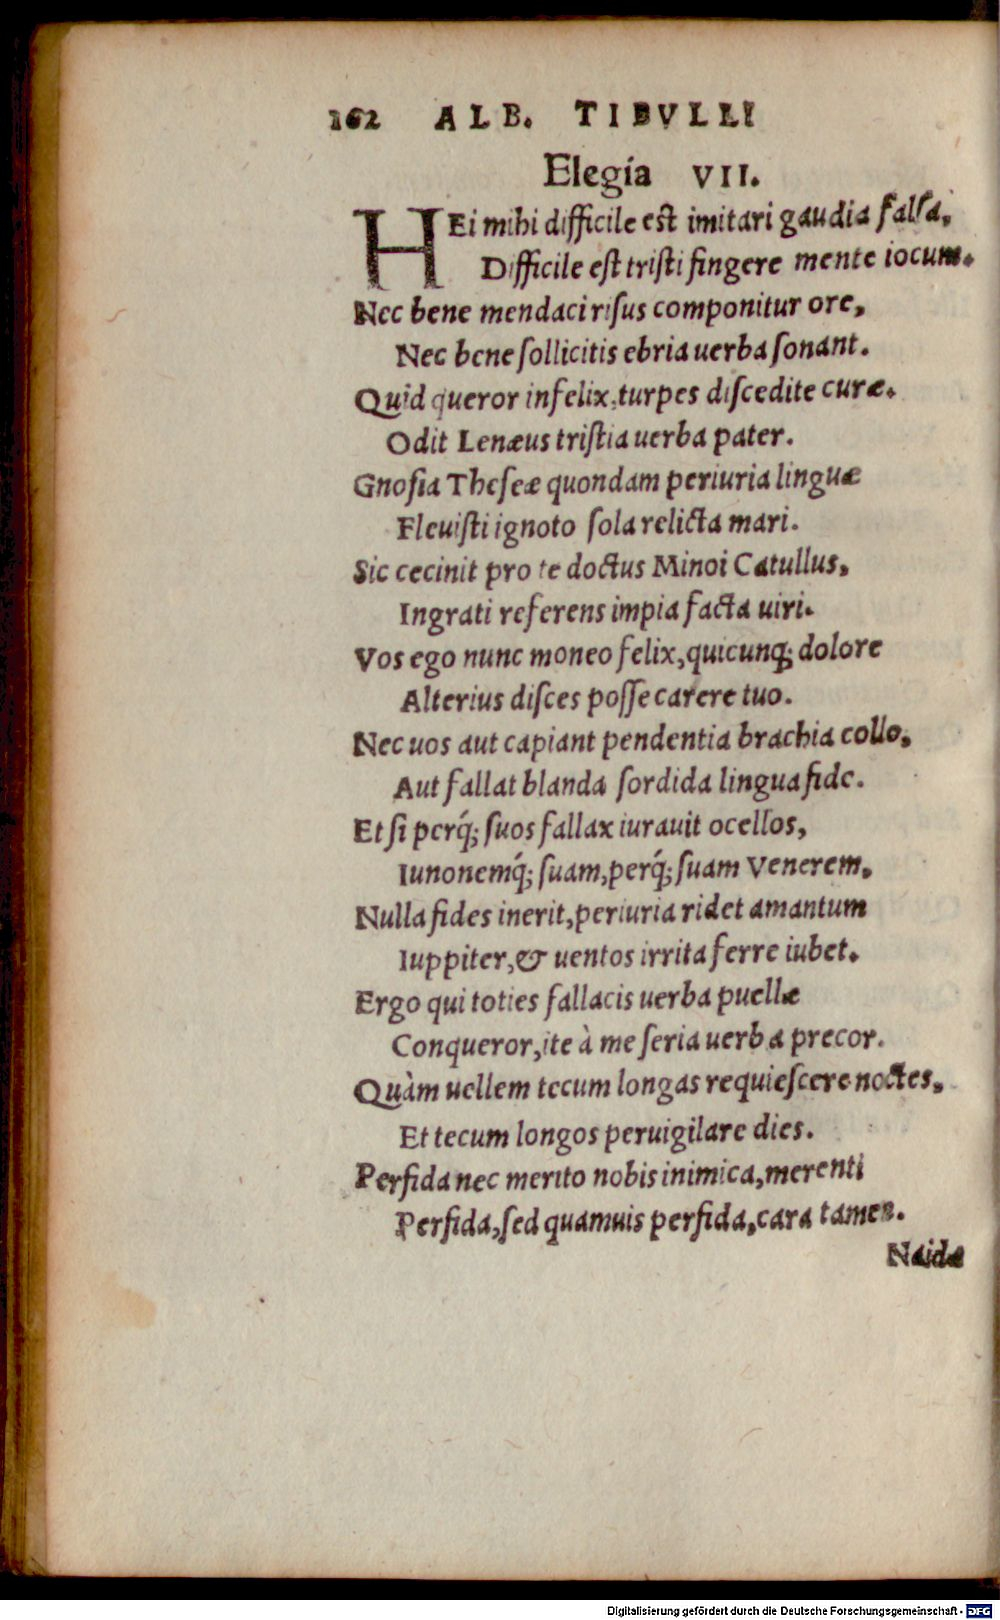 162 ALB. TIBVLLI
Elegía VII.
HEi mihi difficile est imitari gaudia falsa,
Difficile est tristi fingere mente iocum.
Nec bene mendaci risus componitur ore,
Nec bene sollicitis ebria uerba sonant.
Quid queror infelix, turpes discedite curæ.
Odit Lenæus tristia uerba pater.
Gnosia Theseæ quondam periuria linguæ
Fleuisti ignoto sola relicta mari.
Sic cecinit pro te doctus Minoi Catullus,
Ingrati referens impia facta uiri.
Vos ego nunc moneo felix, quicunq; dolore
Alterius disces posse carere tuo.
Nec uos aut capiant pendentia brachia collo,
Aut fallat blanda sordida lingua fide.
Et si perq́; suos fallax iurauit ocellos,
Iunonemq́; suam, perq́; suam Venerem,
Nulla fides inerit, periuria ridet amantum
Iuppiter, & uentos irrita ferre iubet.
Ergo qui toties fallacis uerba puellæ
Conqueror, ite à me seria uerba precor.
Quàm uellem tecum longas requiescere noctes,
Et tecum longos peruigilare dies.
Perfida nec merito nobis inimica, merenti
Perfida, sed quamuis perfida, cara tamen.
Naidæ
Digitalisierung gefördert durch die Deutsche Forschungsgemeinschaft - DFG